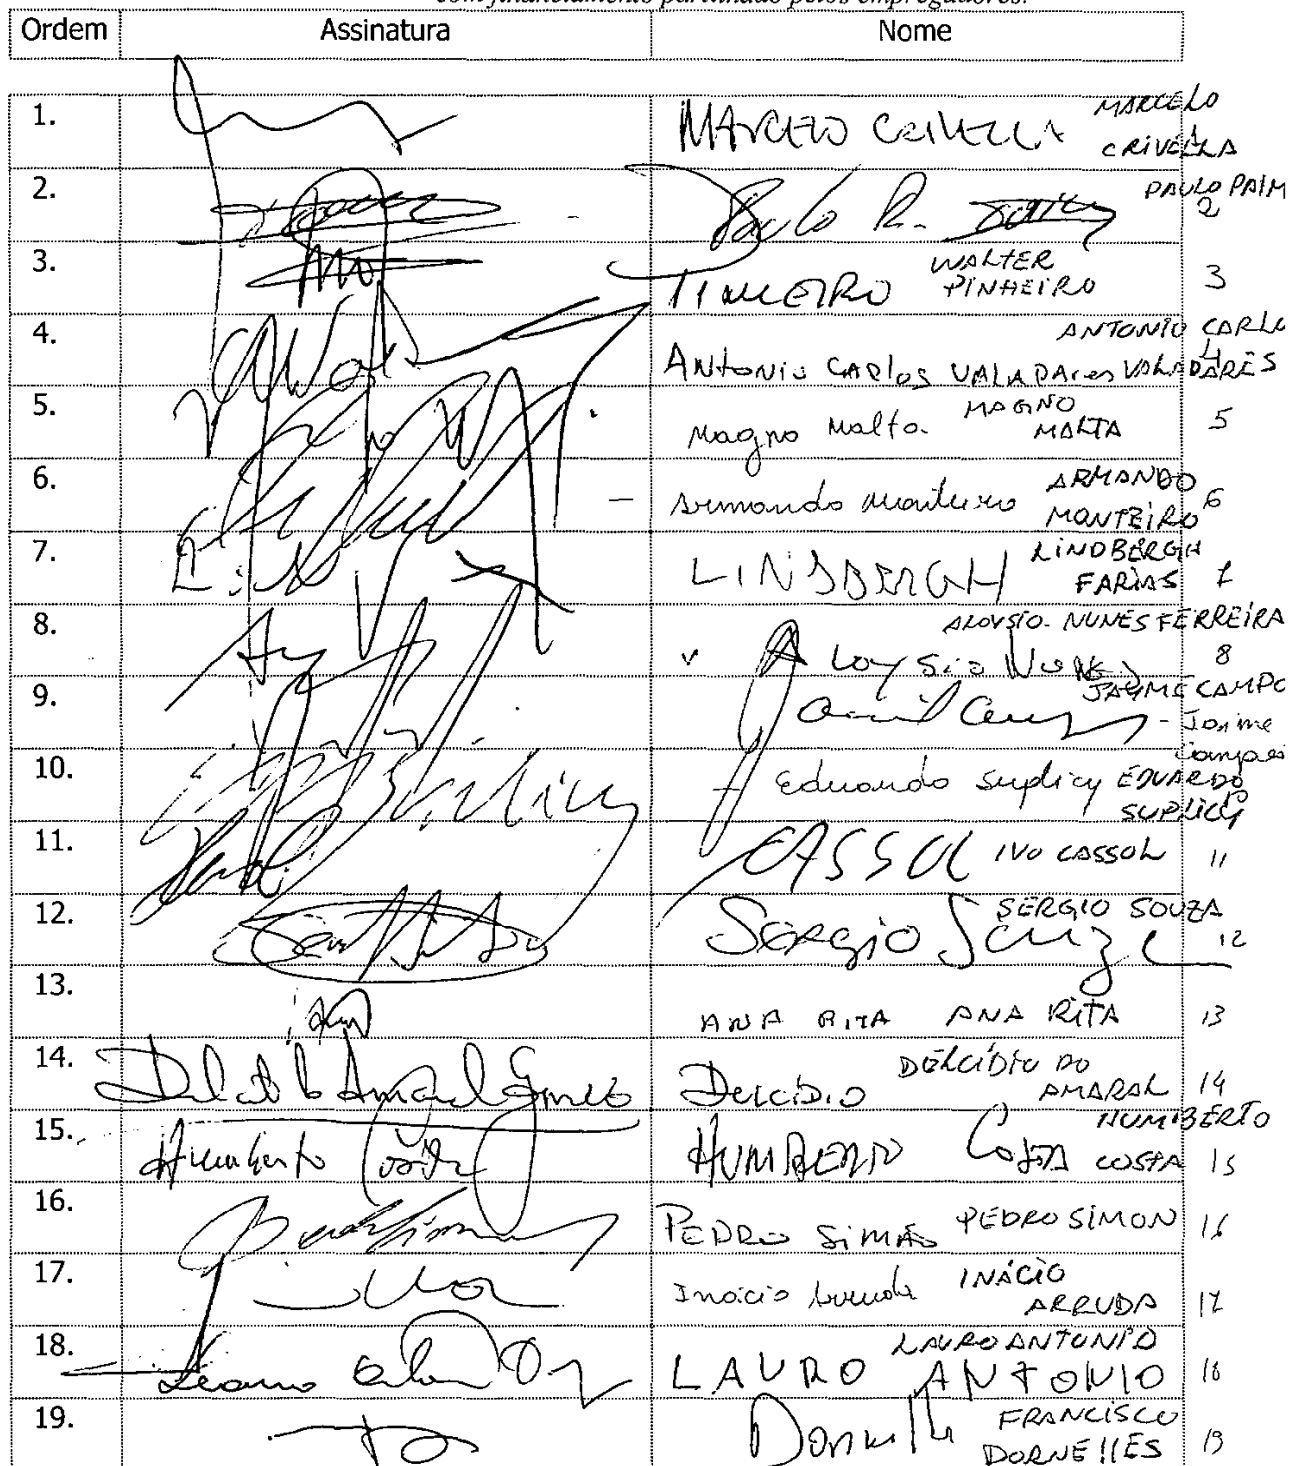 com financiamento partilhado pelos empregadores.
Ordem Assinatura Nome
1. MARCELO CRIVELLA MARCELO
CRIVELLA
2. Paulo R. Paim PAULO PAIM
2
3. PINHEIRO WALTER
PINHEIRO 3
4. ANTONIO CARLO
4
Antonio CARlos VALADAres VALADARES
5. Magno Malta MAGNO
MALTA 5
6. Armando Monteiro ARMANDO
MONTEIRO 6
7. LINDBERGH LINDBERGH
FARIAS 7
8. ALOYSIO NUNES FERREIRA
Aloysio Nunes 8
9. JAYME CAMPO
- Jaime
Campos
10. Eduardo Suplicy EDUARDO
SUPLICY
11. CASSOL IVO CASSOL 11
12. Sergio Souza SERGIO SOUZA
12
13. ANA RITA ANA RITA 13
14. Delcídio DELCÍDIO DO
AMARAL 14
15. Humberto Costa HUMBERTO Costa HUMBERTO
COSTA 15
16. PEDRO SIMÃO PEDRO SIMON 16
17. Inácio Arruda INÁCIO
ARRUDA 17
18. LAURO ANTONIO
LAURO ANTONIO 18
19. Dornelles FRANCISCO
DORNELLES 19